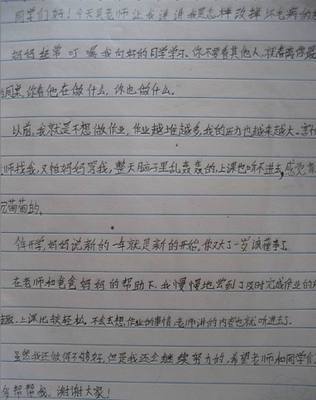 同学们好！今天是老师让我讲讲我是怎样改掉坏毛病的
妈妈经常叮嘱我向好的同学学习。你不要看其他人，
同桌，你看他在做什么，你也做什么。
以前，我就是不想做作业，作业越堆越多，我的压力也越来越大。害怕
师找我，又怕妈妈骂我，整天脑子里乱轰轰的，上课也听不进去，感觉
苗苗的。
开学，妈妈说新的一年就是新的开始，你又大了一岁该懂事了。
在老师和爸爸妈妈的帮助下，我慢慢地尝到了及时完成作业的
趣，上课比较轻松，不去想作业的事情，老师讲的内容也就听进去了。
虽然我还做得不够好，但是我还会继续努力的，希望老师和同学们
多帮帮我。谢谢大家！